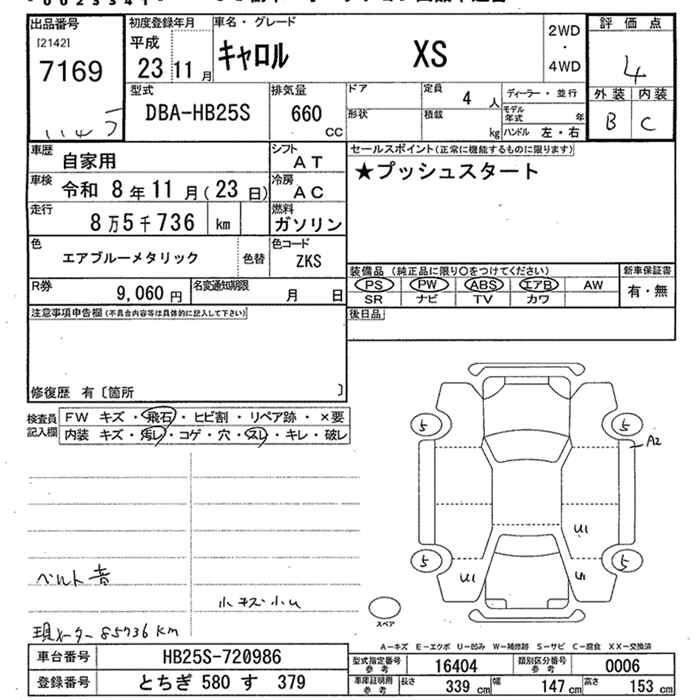 出品番号
[2142]
7169
初度登録年月
平成
23 11 月
車名・グレード
キャロル XS
2WD
・
4WD
評価点
4
外装 内装
B C
型式
DBA-HB25S
排気量
660
CC
ドア
形状
定員
4 人
積載
kg
ディーラー・並行
モデル年式 年
ハンドル 左・右
車歴
自家用
シフト
AT
車検
令和 8年11月(23日)
冷房
AC
走行
8万5千736 km
燃料
ガソリン
色
エアブルーメタリック
色替
色コード
ZKS
R券
9,060 円
名変通知期限
月 日
セールスポイント(正常に機能するものに限ります)
★プッシュスタート
装備品 (純正品に限り○をつけてください)
PS PW ABS エアB AW
SR ナビ TV カワ
新車保証書
有・無
後日品
注意事項申告欄(不具合内容等は具体的に記入して下さい)
修復歴 有〔箇所 〕
検査員
記入欄
FW キズ・飛石・ヒビ割・リペア跡・×要
内装 キズ・汚レ・コゲ・穴・スレ・キレ・破レ
5 5
A2
U1
5 5
U1 U1
ベルト音
小キズ小U
現メーター 85736km
スペア
A-キズ E-エクボ U-凹み W-補修跡 S-サビ C-腐食 XX-交換済
車台番号 HB25S-720986
登録番号 とちぎ 580 す 379
型式指定番号
参考
16404
類別区分番号
参考
0006
車庫証明用
参考
長さ 339 cm 幅 147 cm 高さ 153 cm